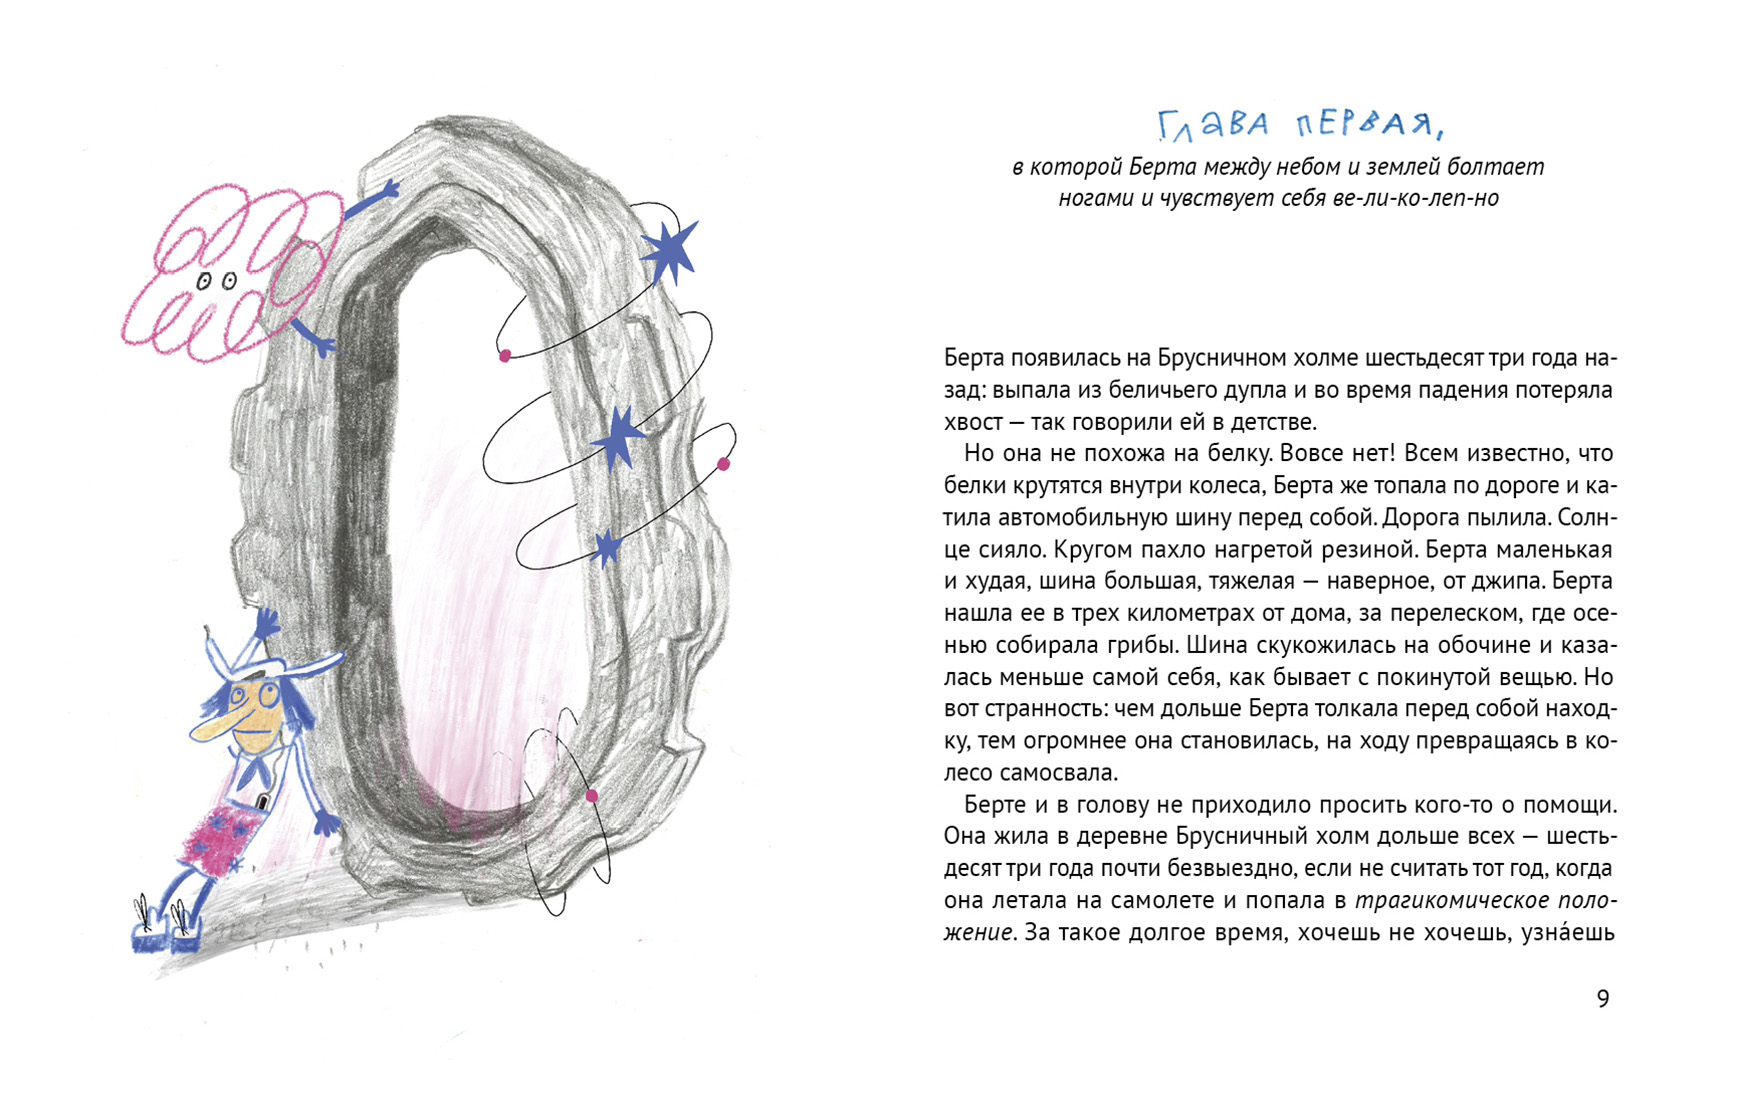 Глава первая,
в которой Берта между небом и землей болтает
ногами и чувствует себя ве-ли-ко-леп-но
Берта появилась на Брусничном холме шестьдесят три года на-
зад: выпала из беличьего дупла и во время падения потеряла
хвост — так говорили ей в детстве.
Но она не похожа на белку. Вовсе нет! Всем известно, что
белки крутятся внутри колеса, Берта же топала по дороге и ка-
тила автомобильную шину перед собой. Дорога пылила. Солн-
це сияло. Кругом пахло нагретой резиной. Берта маленькая
и худая, шина большая, тяжелая — наверное, от джипа. Берта
нашла ее в трех километрах от дома, за перелеском, где осе-
нью собирала грибы. Шина скукожилась на обочине и каза-
лась меньше самой себя, как бывает с покинутой вещью. Но
вот странность: чем дольше Берта толкала перед собой наход-
ку, тем огромнее она становилась, на ходу превращаясь в ко-
лесо самосвала.
Берте и в голову не приходило просить кого-то о помощи.
Она жила в деревне Брусничный холм дольше всех — шесть-
десят три года почти безвыездно, если не считать тот год, когда
она летала на самолете и попала в трагикомическое поло-
жение. За такое долгое время, хочешь не хочешь, узна́ешь
9